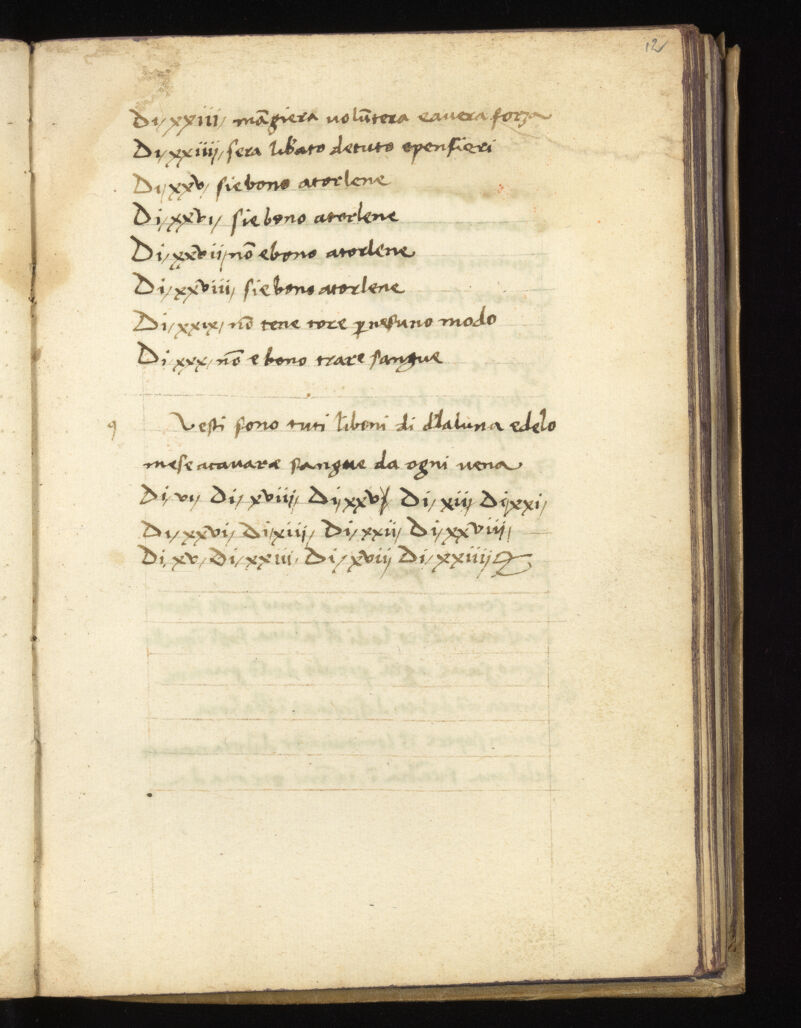 12
Di xxiii mãgiera volũtera e avera forza
Di xxiiii sera libato detuto epensieri
Di xxv sie bono atorlene
Di xxvi sie bono atorlene
Di xxvii nõ e bono atorlene
Di xxviii sie bono atorlene
Di xxix nõ tene tore ꝑ nesuno modo
Di xxx nõ e bono trare sangue
q Vesti sono tuti liboni di dlaluna edelo
mese acavare sangue da ogni vena
Di vi Di xviii Di xxv Di xii Di xxi
Di xxvi Di xiii Di xxii Di xxviii
Di xv Di xxiii Di xvii Di xxiiii